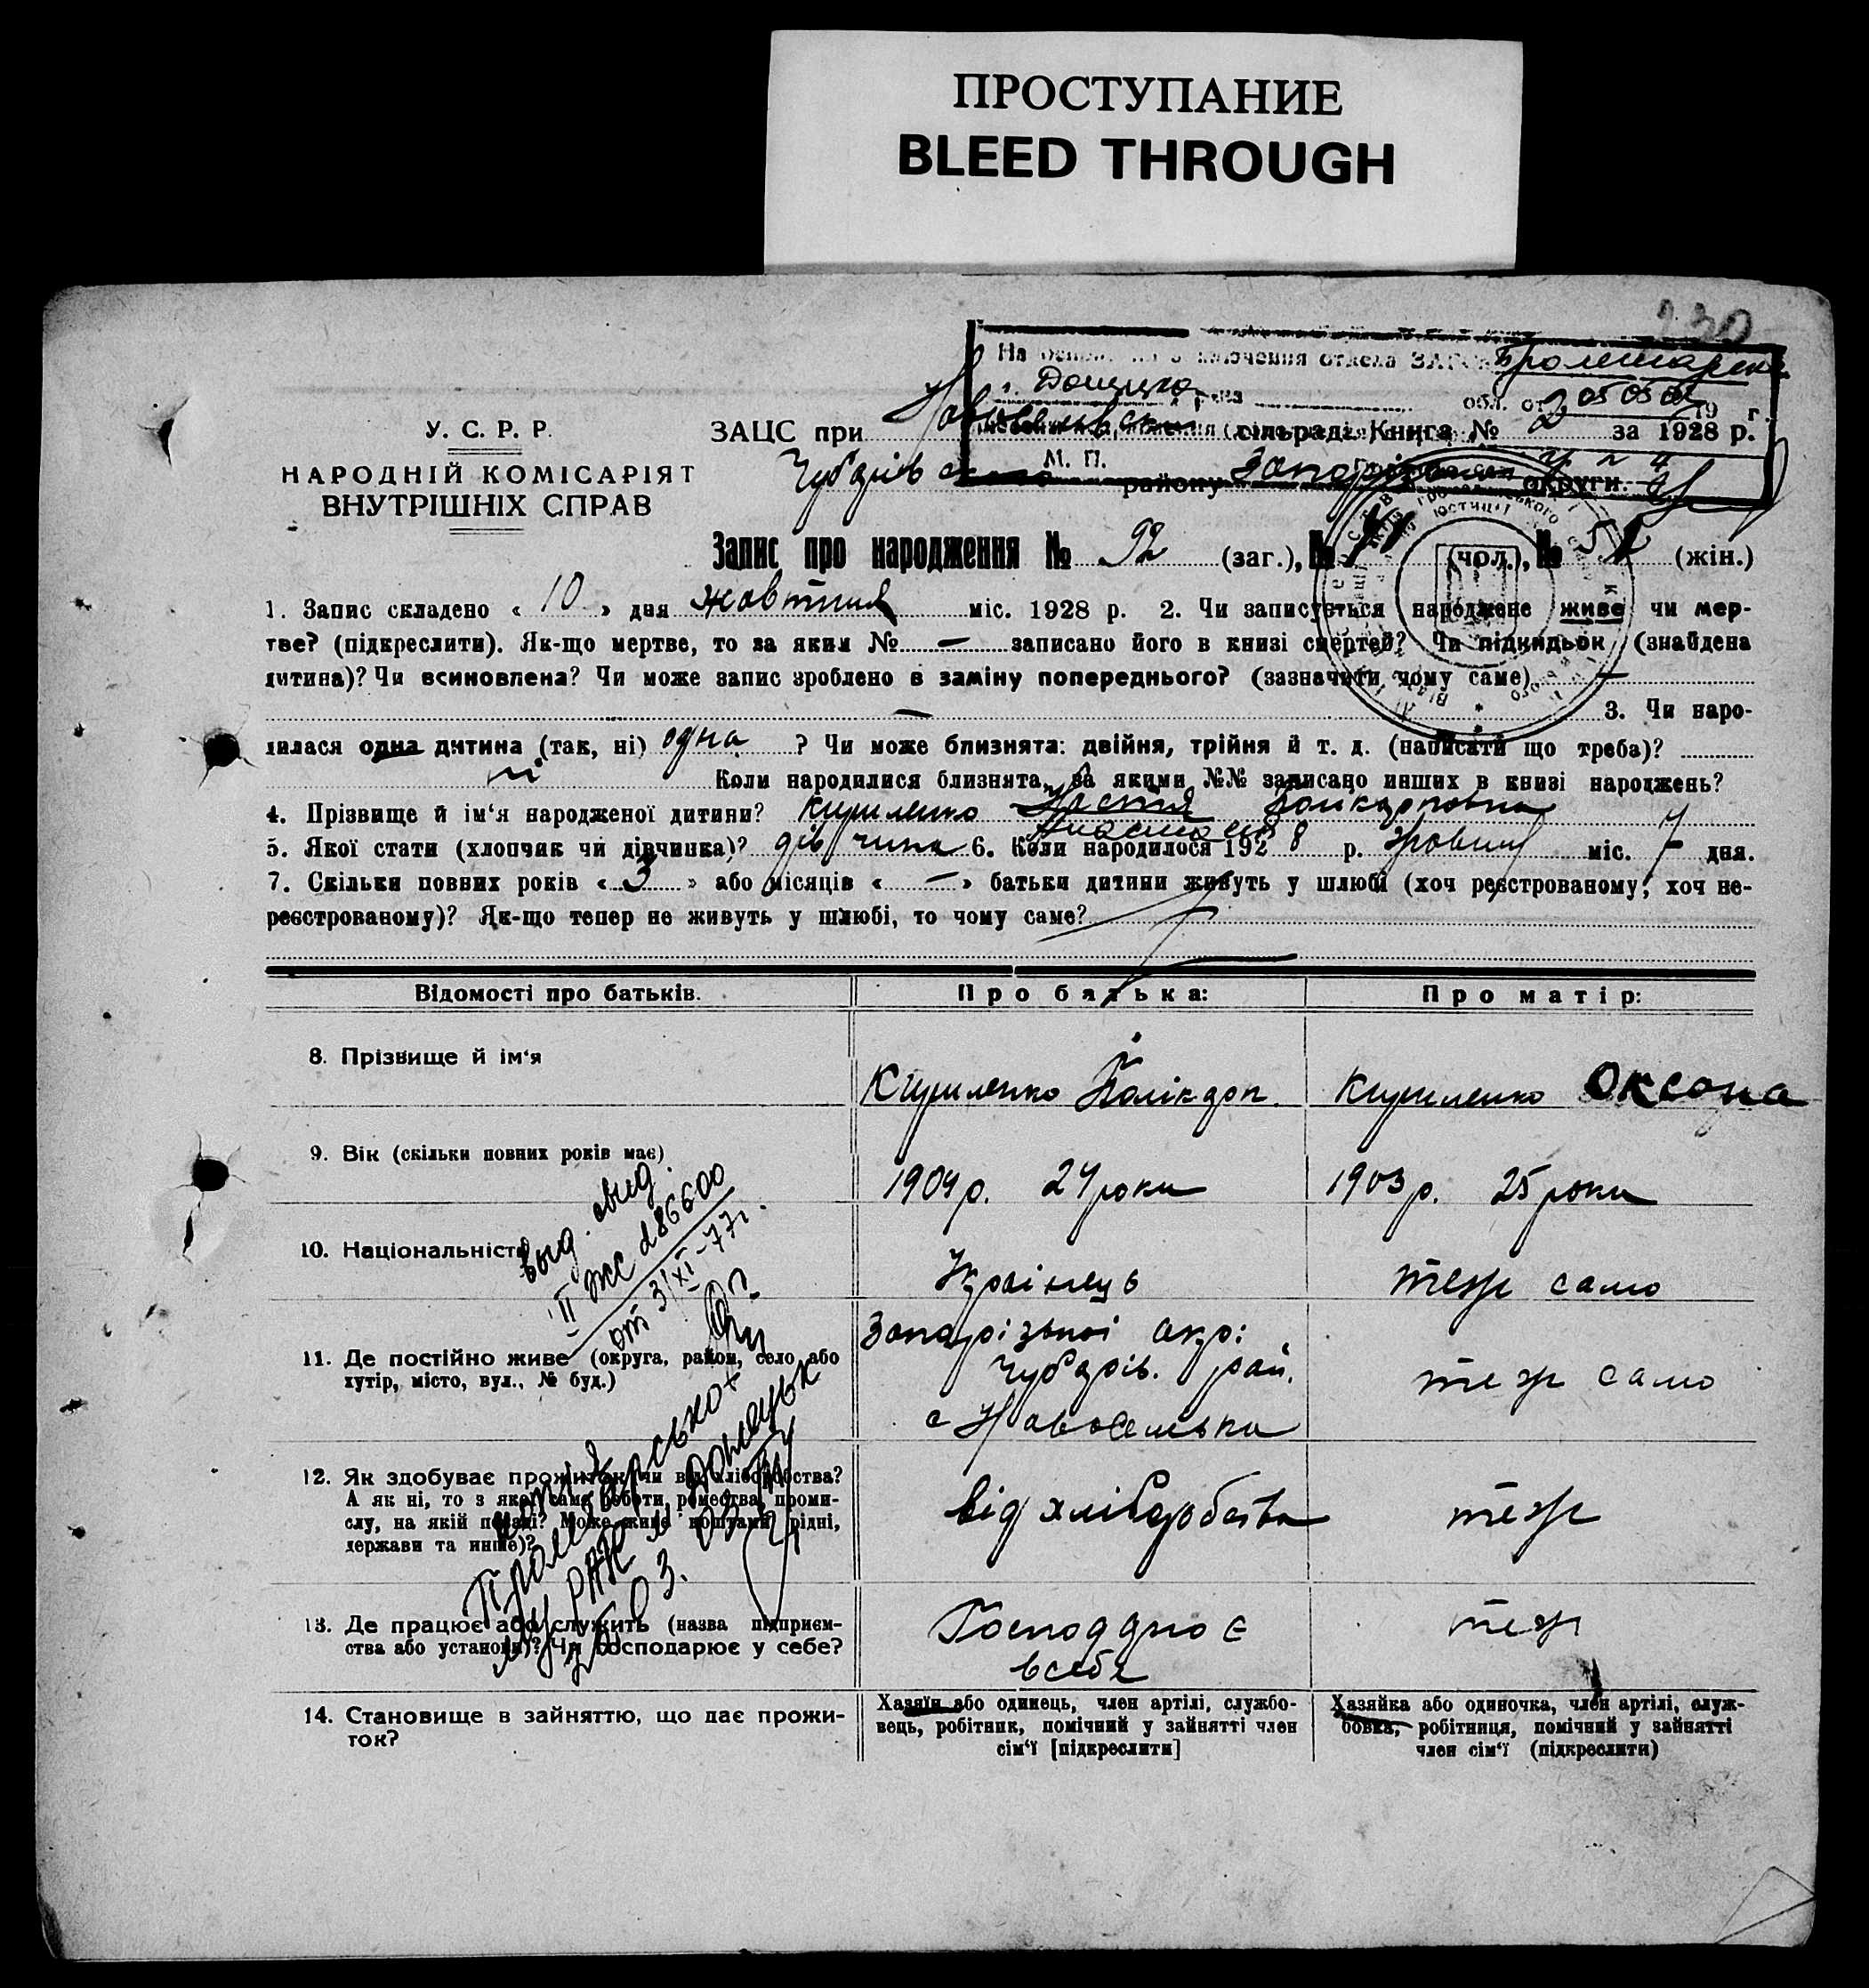 ПРОСТУПАНИЕ
BLEED THROUGH
230
На
отдела ЗАГС Пролетарск
г. Донецка
обл. от 05 05 19 г.
У. С. Р. Р.
НАРОДНІЙ КОМІСАРІЯТ
ВНУТРІШНІХ СПРАВ
ЗАЦС при Новоселівськ сільраді. Книга № 2 за 1928 р.
М. П.
Чубарівського району Запорізької округи.
Запис про народження № 92 (заг.), № 41 (чол.), № 51 (жін.)
1. Запис складено « 10 » дня жовтня міс. 1928 р. 2. Чи записується народжене живе чи мер-
тве? (підкреслити). Як-що мертве, то за яким № — записано його в книзі смертей? Чи підкидьок (знайдена
дитина)? Чи всиновлена? Чи може запис зроблено в заміну попереднього? (зазначити чому саме) —
— 3. Чи наро-
дилася одна дитина (так, ні) одна ? Чи може близнята: двійня, трійня й т. д. (написати що треба)?
ні Коли народилися близнята, за якими №№ записано инших в книзі народжень?
4. Прізвище й ім'я народженої дитини? Кириленко Настя
Анастасія
5. Якої стати (хлопчик чи дівчинка)? дівчина 6. Коли народилося 192 8 р. Жовтня міс. 7 дня.
7. Скільки повних років « 3 » або місяців « — » батьки дитини живуть у шлюбі (хоч реєстрованому, хоч не-
реєстрованому)? Як-що тепер не живуть у шлюбі, то чому саме?
Відомості про батьків.
Про батька:
Про матір:
8. Прізвище й ім'я
Кириленко Полікарп.
Кириленко Оксана
9. Вік (скільки повних років має)
1904 р. 24 роки
1903 р. 25 роки
10. Національність
Українець
теж само
выд. свид.
II ЖС 286600
от 3/XI-77г.
11. Де постійно живе (округа, район, село або
хутір, місто, вул., № буд.)
Запорізької окр:
Чубарів. рай.
с Новоселівка
теж само
12. Як здобуває прожиток, чи від хліборобства?
А як ні, то з якої саме роботи, ремества, проми-
слу, на якій посаді? Може живе коштами рідні,
держави та инше)?
від хліборобства
теж
Пролетарсько
РАГС м. Донецьк
13. Де працює або служить (назва підприєм-
ства або установи)? Чи господарює у себе?
Господарює
в себе
теж
14. Становище в зайняттю, що дає прожи-
ток?
Хазяїн або одинець, член артілі, службо-
вець, робітник, помічний у зайнятті член
сім'ї [підкреслити]
Хазяйка або одиночка, член артілі, служ-
бовка, робітниця, помічний у зайнятті
член сім'ї (підкреслити)